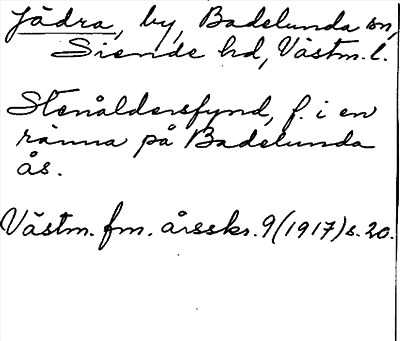 Jädra, by, Badelunda sn,
Siende hd, Västm. l.
Stenåldersfynd, f. i en
ränna på Badelunda
ås.
Västm. fm. årsskr. 9 (1917) s. 20.